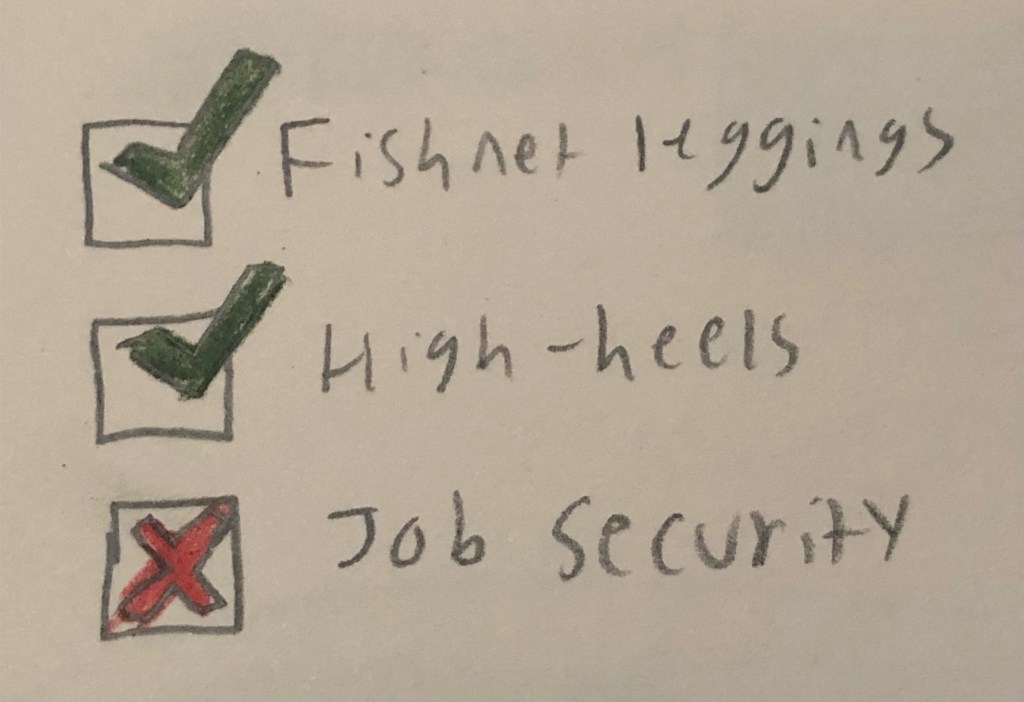 Fishnet leggings
High-heels
Job security